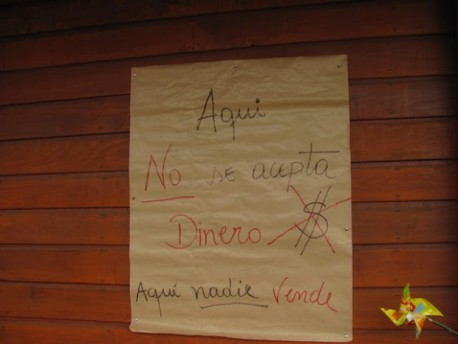 Aqui
No se acepta
Dinero $
Aquí nadie vende